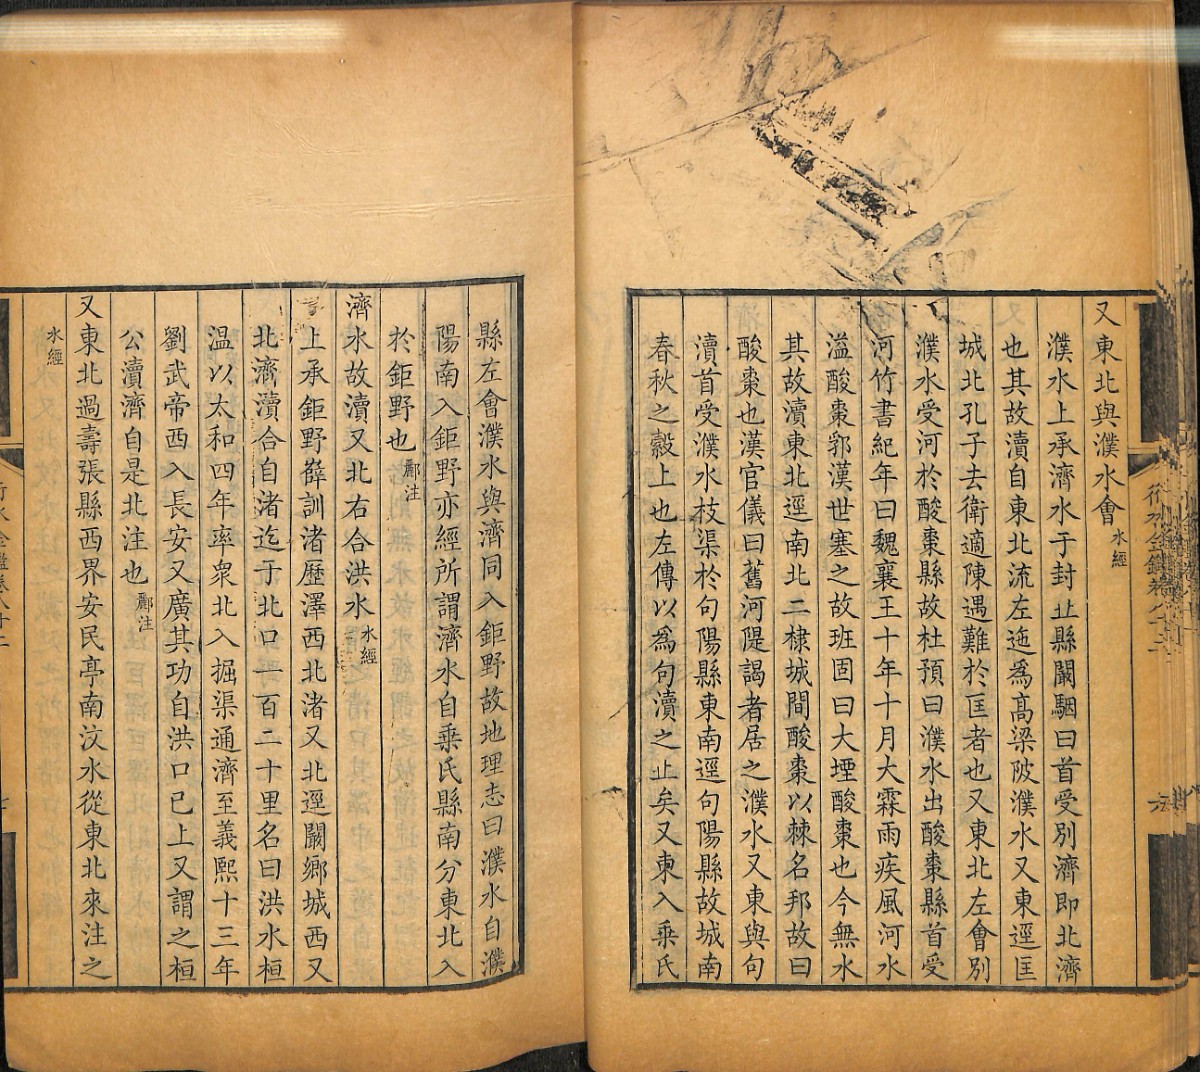 又東北與濮水會水經
濮水上承濟水于封丘縣闞駰曰首受別濟即北濟
也其故瀆自東北流左迤為高梁陂濮水又東逕匡
城北孔子去衛適陳遇難於匡者也又東北左會別
濮水受河於酸棗縣故杜預曰濮水出酸棗縣首受
河竹書紀年曰魏襄王十年十月大霖雨疾風河水
溢酸棗郛漢世塞之故班固曰大堙酸棗也今無水
其故瀆東北逕南北二棣城間酸棗以棘名邦故曰
酸棗也漢官儀曰舊河隄謁者居之濮水又東與句
瀆首受濮水枝渠於句陽縣東南逕句陽縣故城南
春秋之穀上也左傳以為句瀆之丘矣又東入乘氏
縣左會濮水與濟同入鉅野故地理志曰濮水自濮
陽南入鉅野亦經所謂濟水自乘氏縣南分東北入
於鉅野也酈注
濟水故瀆又北右合洪水水經
上承鉅野薛訓渚歷澤西北渚又北逕闞鄉城西又
北濟瀆合自渚迄于北口一百二十里名曰洪水桓
温以太和四年率眾北入掘渠通濟至義熙十三年
劉武帝西入長安又廣其功自洪口已上又謂之桓
公瀆濟自是北注也酈注
又東北過壽張縣西界安民亭南汶水從東北來注之
水經
行水金鑑卷八十二